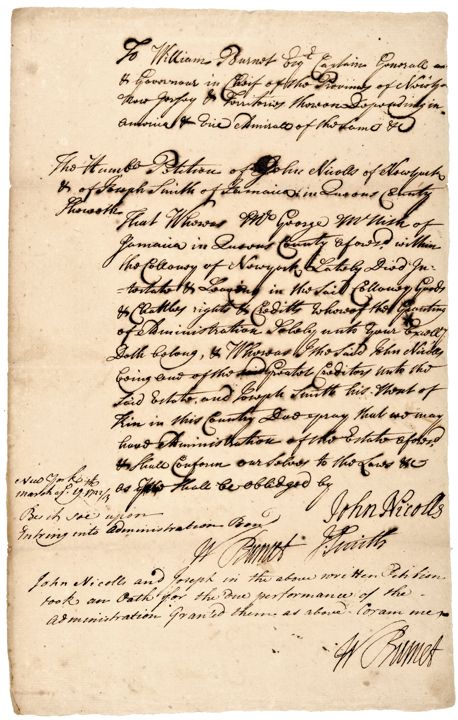 To William Burnet Esqr Captain Generall an
& Governour in Cheif of the Province of New Y
New Jersey & Territories thereon Depending in
America & Vice Admirall of the same &c
The Humble Petition of John Nicolls of New York
& of Joseph Smith of Jamaica in Queens County
Sheweth
That Whereas Mr George McNish of
Jamaica in Queens County aforesd within
the Collouey of Newyork Lately Died In-
testate & Leaving in the Said Collouey Goods
& Chattles rights & Creditts whereof the Granting
of Administration Solely unto Your Excelly
Doth belong, & Whereas the said John Nicolls
being one of the Greatest Creditors unto the
Said Estate, and Joseph Smith his Next of
Kin in this Country Doe pray that we may
have Administration of the Estate aforesd
& Shall Conform ourselves to the Laws &c
as shall be obledged by
John Nicolls
New York
march 19
Be it soe upon
Entring into Administration Bond
W Burnet
J Smith
John Nicolls and Joseph in the above written Petition
took an Oath for the due performance of the
Administration Granted them as above. Coram me
W Burnet